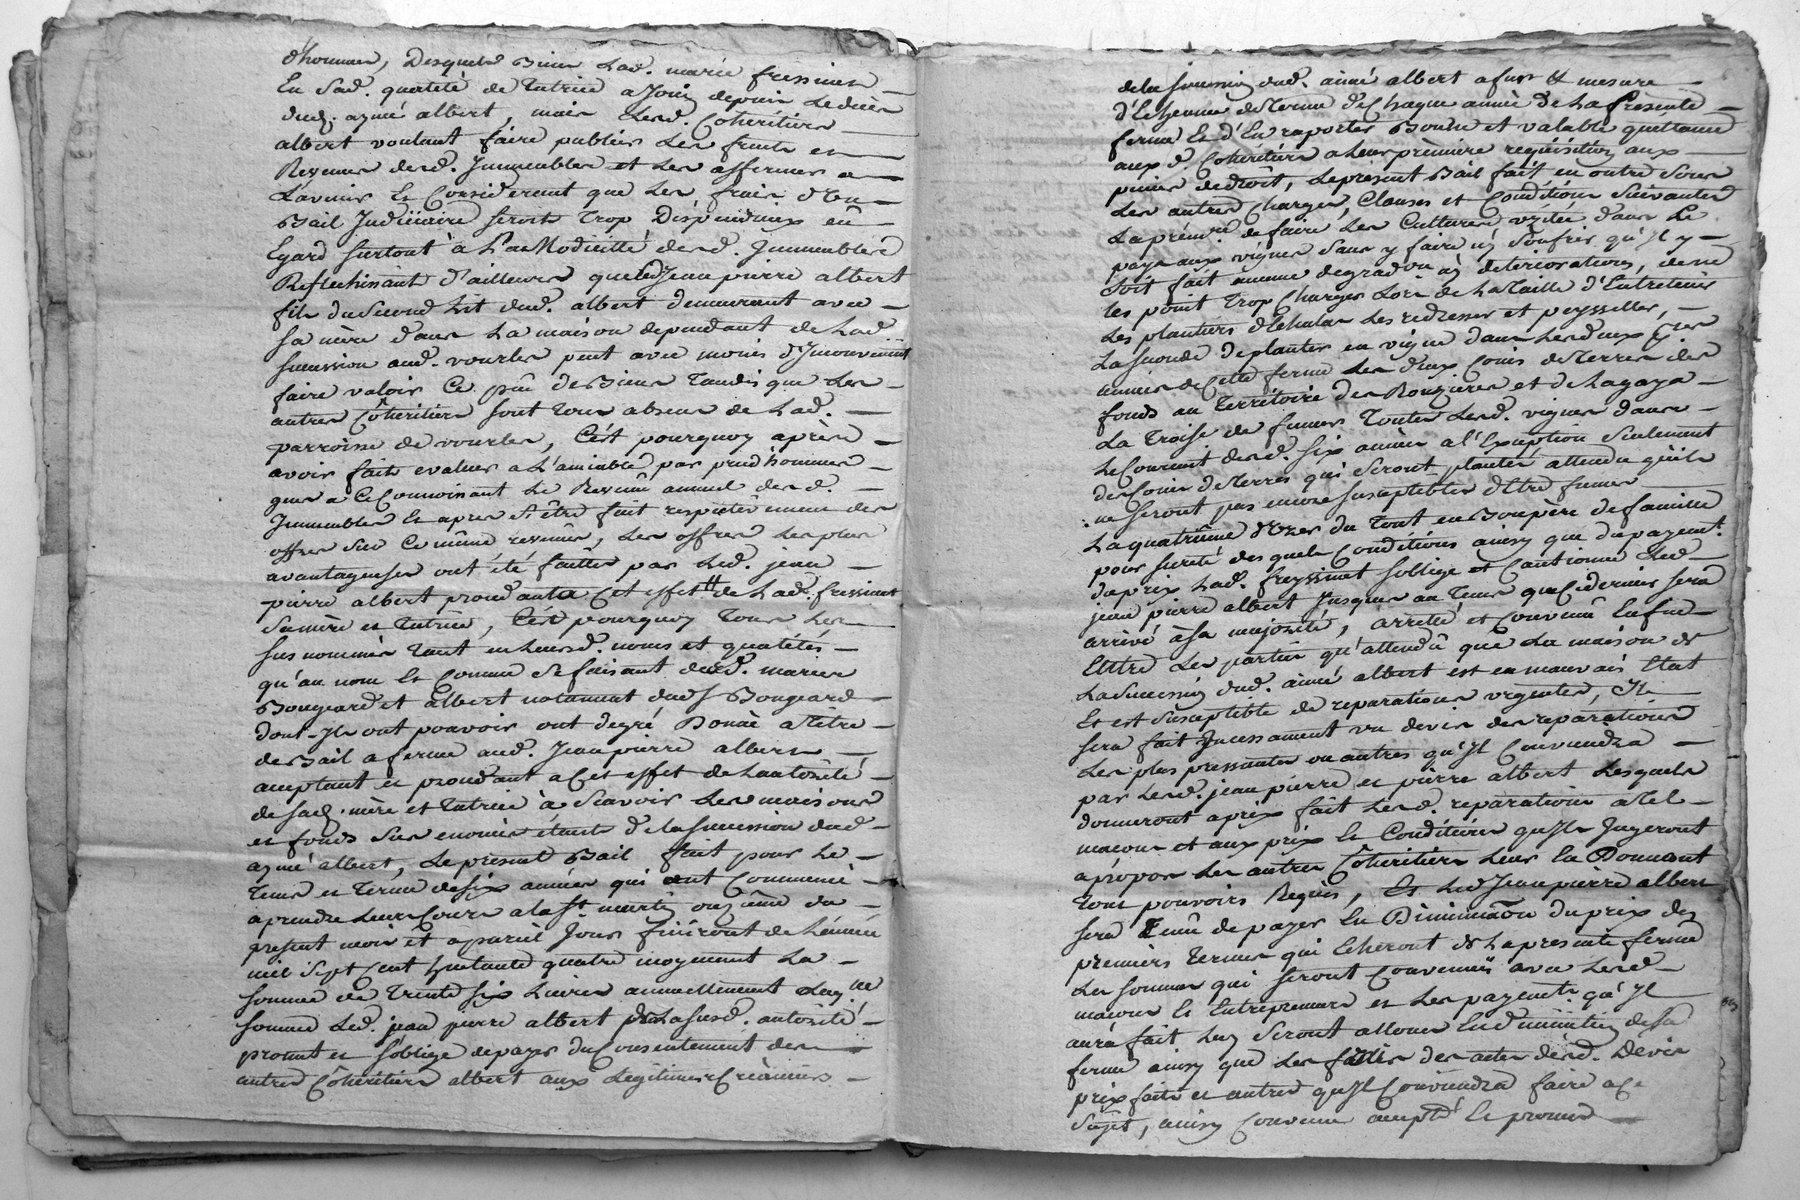 d'hommes, Desquels Biens Lad. marie fressinet
En Sad. quatité de Tutrice a Jouy depuis Ledécès
dud. aymé albert, mais Lesd. Cohéritiers
albert voulant faire publier Les fruits et
Revenus desd. Jmmeubles et Les affermer a
L'avenir Et Considerant que Les frais d'Un
Bail Judiciaire seroit Trop Dispendieux Eû
Egard surtout à La Modicitté desd. Jmmeubles
Reflechissant d'ailleurs que led Jean pierre albert
fils du Second Lit dud. albert demeurant avec
sa mère dans La maison dependant de Lad.
succession aud. vourles peut avec moins d'Jnconvenient
faire valoir Ce peu de Biens Tandis que Les
autres Cohéritiers sont Tous absens de Lad.
parroisse de vourles, C'est pourquoy après
avoir faits evaluer a L'amiable par prud'hommes
gens a Ce Connoissant Le Revenû annuel desd.
Jmmeubles Et apres s'être fait respectivement des
offres sur Ce même revenû, Les offres Les plus
avantageuses ont été faittes par Led. jean
pierre albert procedant a Cet effet de Lad. fressinet
Sa mère et Tutrice, C'est pourquoy Tous Les
susnommés Tant en Leursd. noms et quatités
qu'au nom Et Comme Se faisant desd. maries
Bougeard et albert notamment dud. Bougeard
dont Jls ont pouvoir ont degré Donné a Titre
de Bail a ferme aud. Jean pierre albert
acceptant et procedant a Cet effet de L'autorité
de sad. mère et Tutrice à Scavoir Les maisons
et fonds Sus enoncés étants de la succession dud.
aymé albert, Le présent Bail fait pour Le
Tems et Terme de six années qui ont Commencé
a prendre Leur Cours a la st martin onzième du
présent mois et a pareil Jour finiront de L'année
mil Sept Cent huitante quatre moyenant La
somme de Trente six Livres annuellement Laq.lle
somme Led. jean pierre albert de La susd. autorité
promet et s'oblige de payer du Consentement des
autres Cohéritiers albert aux Légitimes Créanciers
de la succession dud. aimé albert a fur Et mesure
d'Echeance de Terme de Chaque année de La Présente
ferme Et d'En raporter Bonne et valable quittance
aux d. Cohéritiers a Leur première requisition aux
peines de droit, Le present Bail fait en outre Sous
Les autres Charges, Clauses et Conditions Suivantes
La prémre. de faire Les Cultures usitées dans Le
pays aux vignes Sans y faire ny Soufrir qu'Jl y
Soit fait aucune degradon ny deteriorations, de ne
les point Trop Charger Lors de La Taille d'Entretenir
Les plantiers d'Echalas Les redresser et peysseller,
La seconde de planter en vigne dans Lesdeux pres
années de Cette ferme Les deux Coins de Terres des
fonds au Territoire des Bougieres et de Lagaya
La Troise de fumer Toutes Lesd. vignes dans
Le Courant desd. six années a L'Exception Seulement
des Coins de Terres qui Seront planté attendu qu'ils
ne Seront pas encore susceptibles d'Etre fumes
La quatrième d'User du Tout en Bon père de famille
pour sureté desquels Conditions ainsy que du payemt.
du prix Lad. freyssinet s'oblige et Cautionne Led.
jean pierre albert Jusques au Tems que Ce dernier sera
arrivé à Sa majorité, arrêté et Convenû Enfin
Entre Les parties qu'attendû que La maison de
La Succession dud. aimé albert est en mauvais Etat
Et est Susceptible de reparations urgentes, Jl
sera fait Jncessament un devis des reparations
Les plus pressantes ou autres qu'Jl Conviendra
par Lesd. jean pierre et pierre albert Lesquels
donneront a prix fait Lesd. reparations a Tel
macon et aux prix Et Conditions qu'Jls Jugeront
a propos Les autres Cohéritiers Leur En Donnant
Tous pouvoirs Requis, Et Led. Jean pierre albert
sera Tenû de payer En Diminution du prix des
premiers Termes qui Echeront de La presente ferme
Les sommes qui seront Convenües avec Lesd.
macons Et Entrepreneurs et Les payements qu'Jl
aura fait Luy Seront alloues En diminution de Sa
ferme ainsy que Les frais des actes desd. Devis
prix faits et autres qu'Jl Conviendra faire a Ce
Sujet, ainsy Convenu accepté Et promis